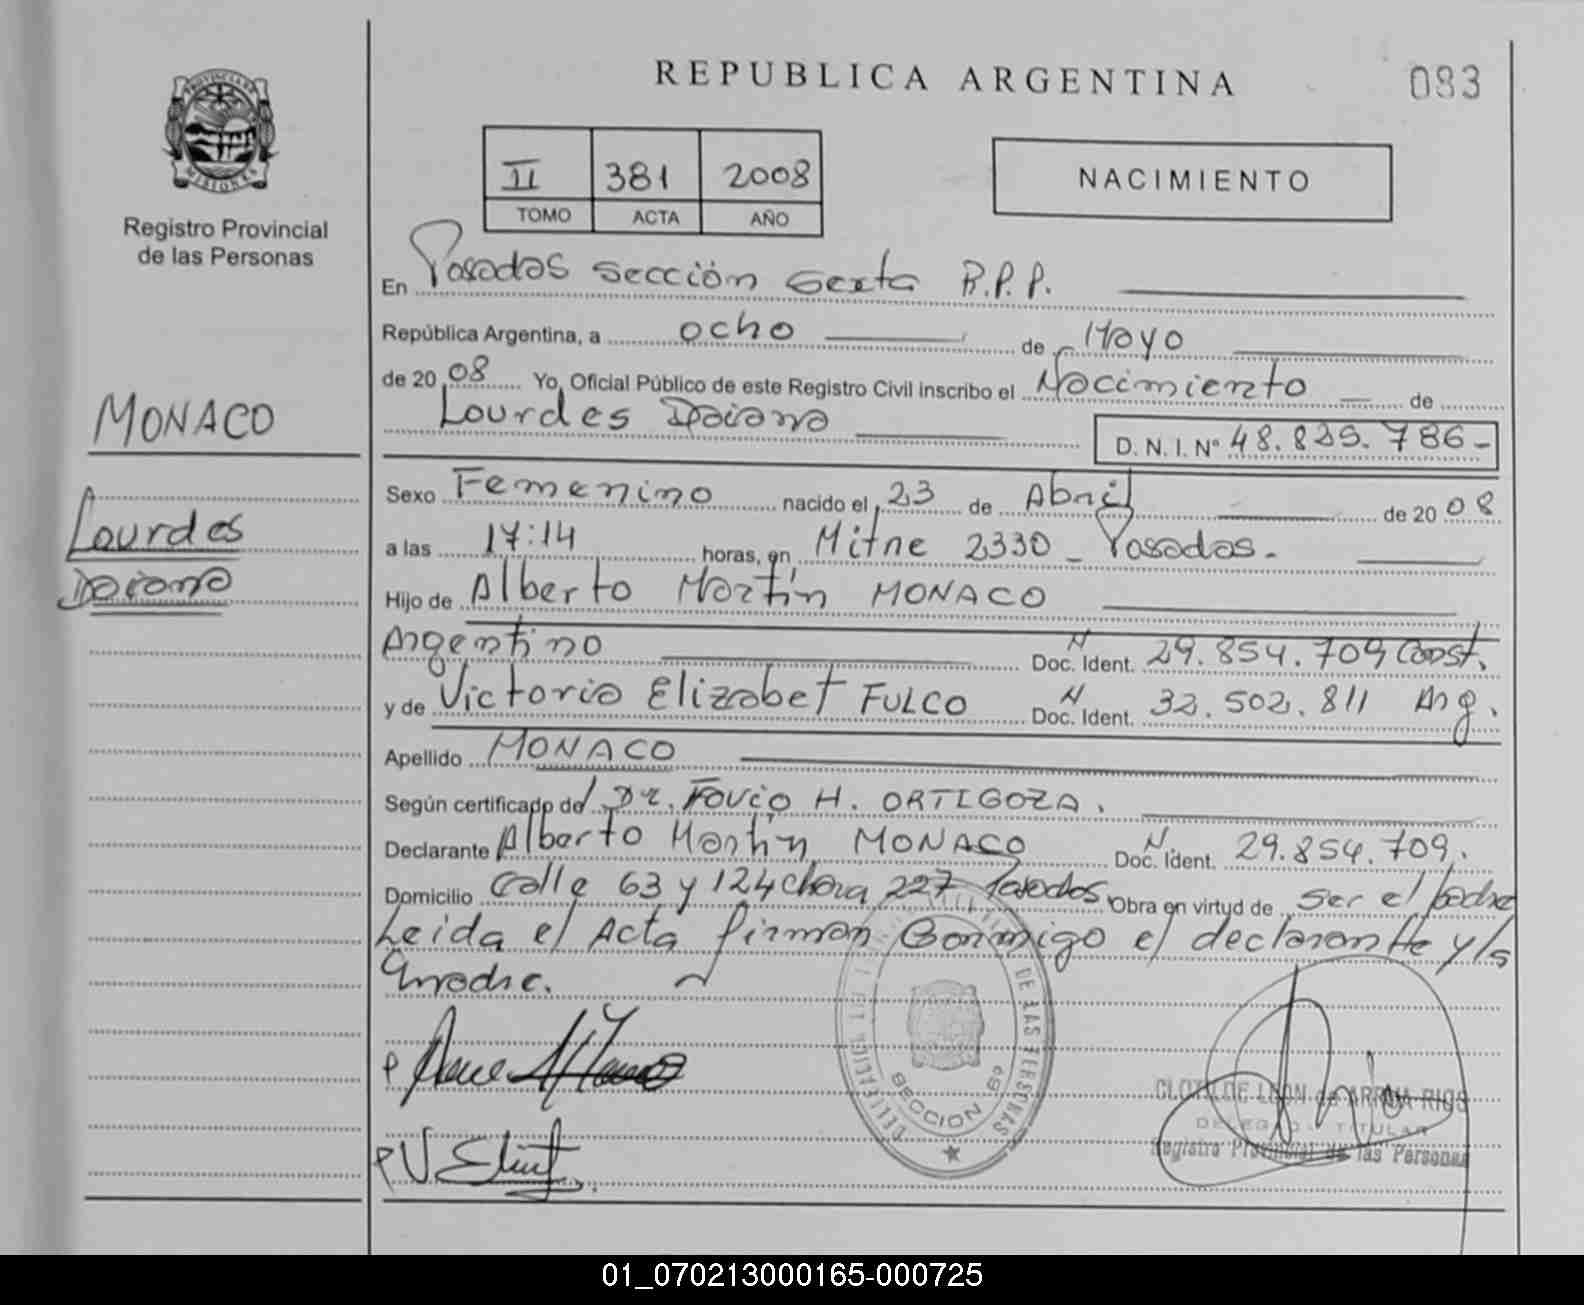 REPUBLICA ARGENTINA
083
PROVINCIA DE MISIONES
Registro Provincial
de las Personas
II 381 2008
TOMO ACTA AÑO
NACIMIENTO
En Posadas sección sexta R.P.P.
República Argentina, a ocho de Mayo
de 20 08 Yo, Oficial Público de este Registro Civil inscribo el Nacimiento de
Lourdes Daiana D. N. I. Nº 48.825.786-
MONACO
Lourdes
Daiana
Sexo Femenino nacido el 23 de Abril de 20 08
a las 17:14 horas, en Mitre 2330 - Posadas.
Hijo de Alberto Martín MONACO
Argentino N Doc. Ident. 29.854.709 Const.
y de Victoria Elizabet FULCO N Doc. Ident. 32.502.811 Arg.
Apellido MONACO
Según certificado del Dr. Favio H. ORTIGOZA.
Declarante Alberto Martín MONACO N. Doc. Ident. 29.854.709.
Domicilio Calle 63 y 124 chacra 227 Posadas. Obra en virtud de ser el padre
Leida el Acta firman Conmigo el declarante y la
madre.
DE LAS PERSONAS
SECCION 6º
CLOTILDE LEON de ARRUA RIOS
DELEGADA TITULAR
Registro Provincial de las Personas
01_070213000165-000725